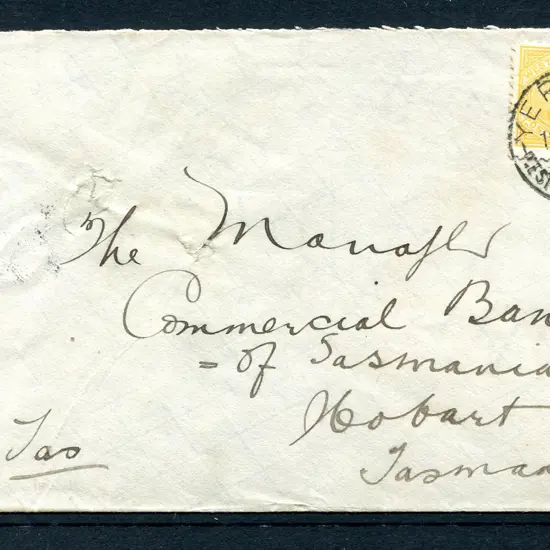 YER
WEST
The Manager
Commercial Ban
= of Tasmania
Hobart
Tasman
Tas